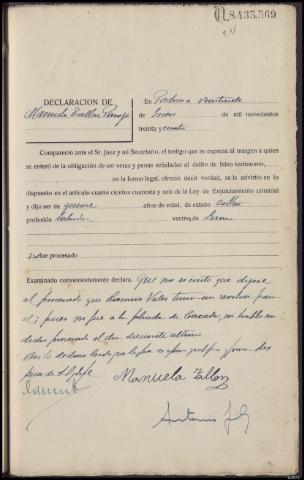 N.8.435.569
24
DECLARACION DE
Manuela Tallon
En Padrón a veintiuno
de Enero de mil novecientos
treinta y cuatro
Compareció ante el Sr. Juez y mí Secretario, el testigo que se expresa al margen a quien
se enteró de la obligación de ser veraz y penas señaladas al delito de falso testimonio,
en la forma legal, ofreció decir verdad, se le advirtió en lo
dispuesto en el artículo cuatro cientos cuarenta y seis de la Ley de Enjuiciamiento criminal
y dijo ser de quince años de edad, de estado soltera
profesión vecino de
No fué procesado
Examinado convenientemente declara. Que no es cierto que dijera
al procesado que Ramiro Vales tenía un revolver para
el; pues no fue a la fiesta de ni hablo con
dicho procesado el dia diecisiete ultimo
Asi lo declara
Manuela Tallon
Antonio